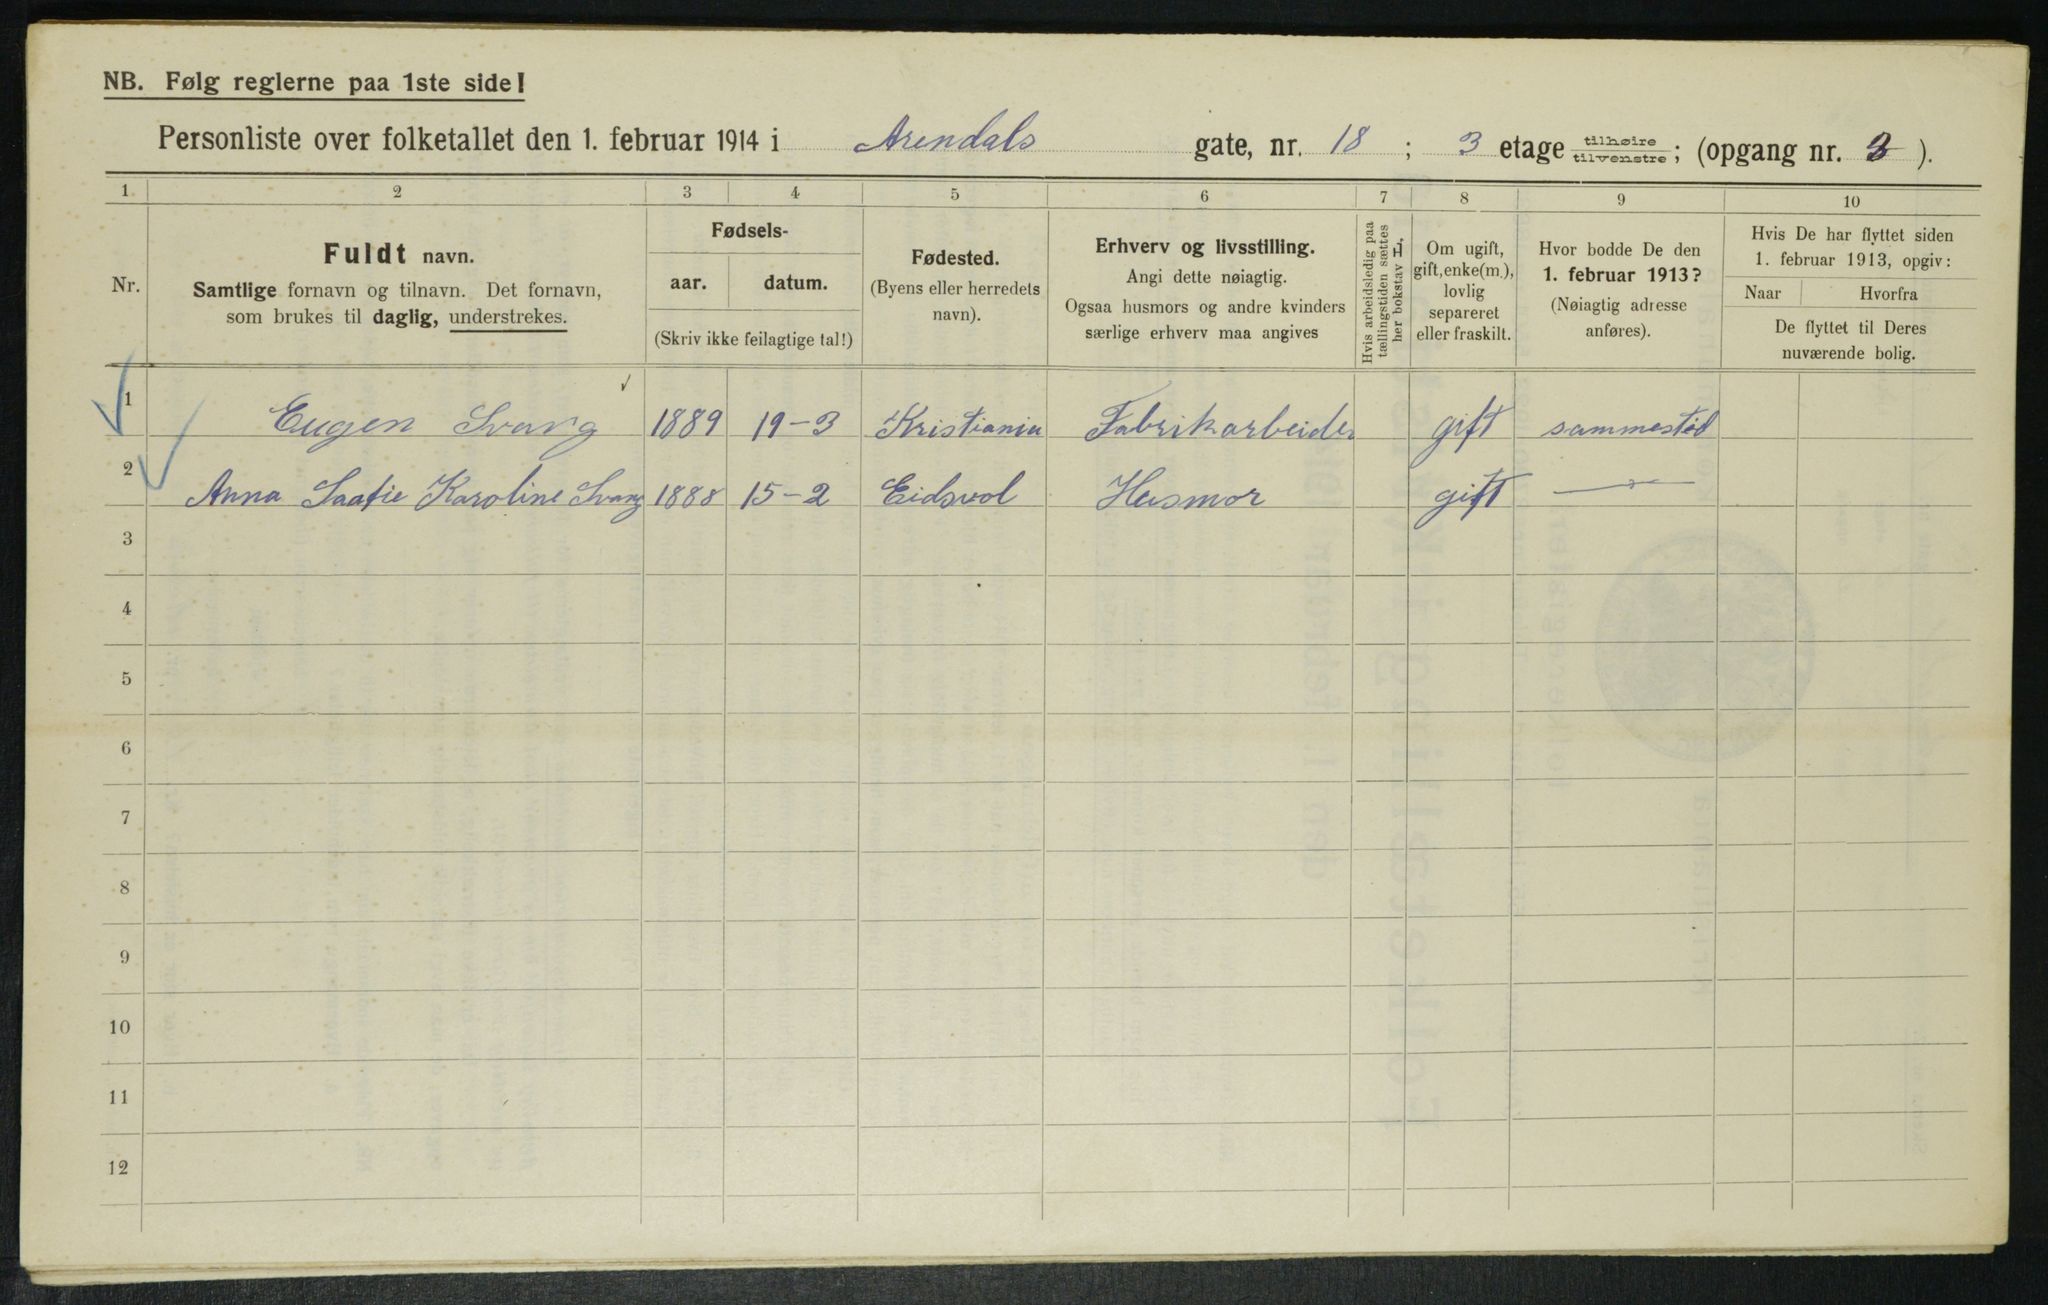 NB. Følg reglerne paa 1ste side!
Personliste over folketallet den 1. februar 1914 i Arendals gate, nr. 18 ; 3 etage tilhøire tilvenstre ; (opgang nr. ).
1 2 3 4 5 6 7 8 9 10
Nr.
Fuldt navn.
Samtlige fornavn og tilnavn. Det fornavn,
som brukes til daglig, understrekes.
Fødsels-
aar. datum.
(Skriv ikke feilagtige tal!)
Fødested.
(Byens eller herredets
navn).
Erhverv og livsstilling.
Angi dette nøiagtig.
Ogsaa husmors og andre kvinders
særlige erhverv maa angives
Hvis arbeidsledig paa
tællingstiden sættes
her bokstav L.
Om ugift,
gift, enke(m.),
lovlig
separeret
eller fraskilt.
Hvor bodde De den
1. februar 1913?
(Nøiagtig adresse
anføres).
Hvis De har flyttet siden
1. februar 1913, opgiv:
Naar Hvorfra
De flyttet til Deres
nuværende bolig.
1 Eugen Svang 1889 19-3 Kristiania Fabrikarbeider gift sammested
2 Anna Karoline Svang 1888 15-2 Eidsvol Husmor gift —"—
3
4
5
6
7
8
9
10
11
12